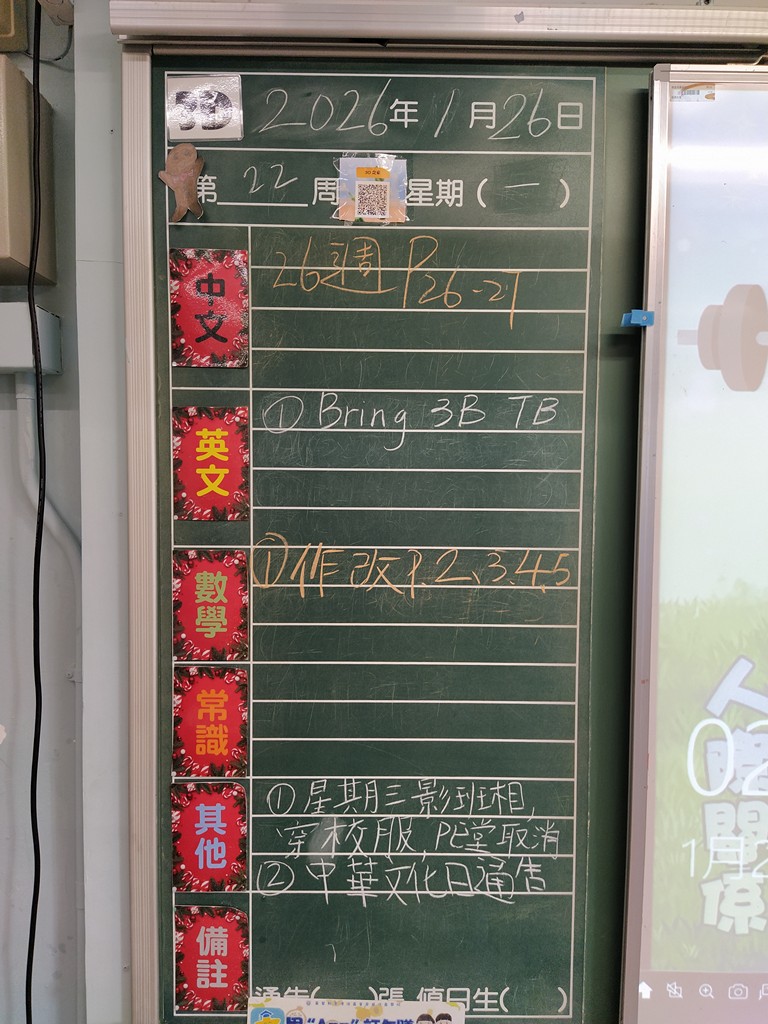 3D 2026年1月26日
第 22 周 星期(一)
中文
26週 P26-27
英文
① Bring 3B TB
數學
① 作改 P.2、3、4、5
常識
其他
① 星期三影班相,
穿校服, PE堂取消
② 中華文化日通告
備註
通告( )張 值日生( )
人際關係
02
1月2